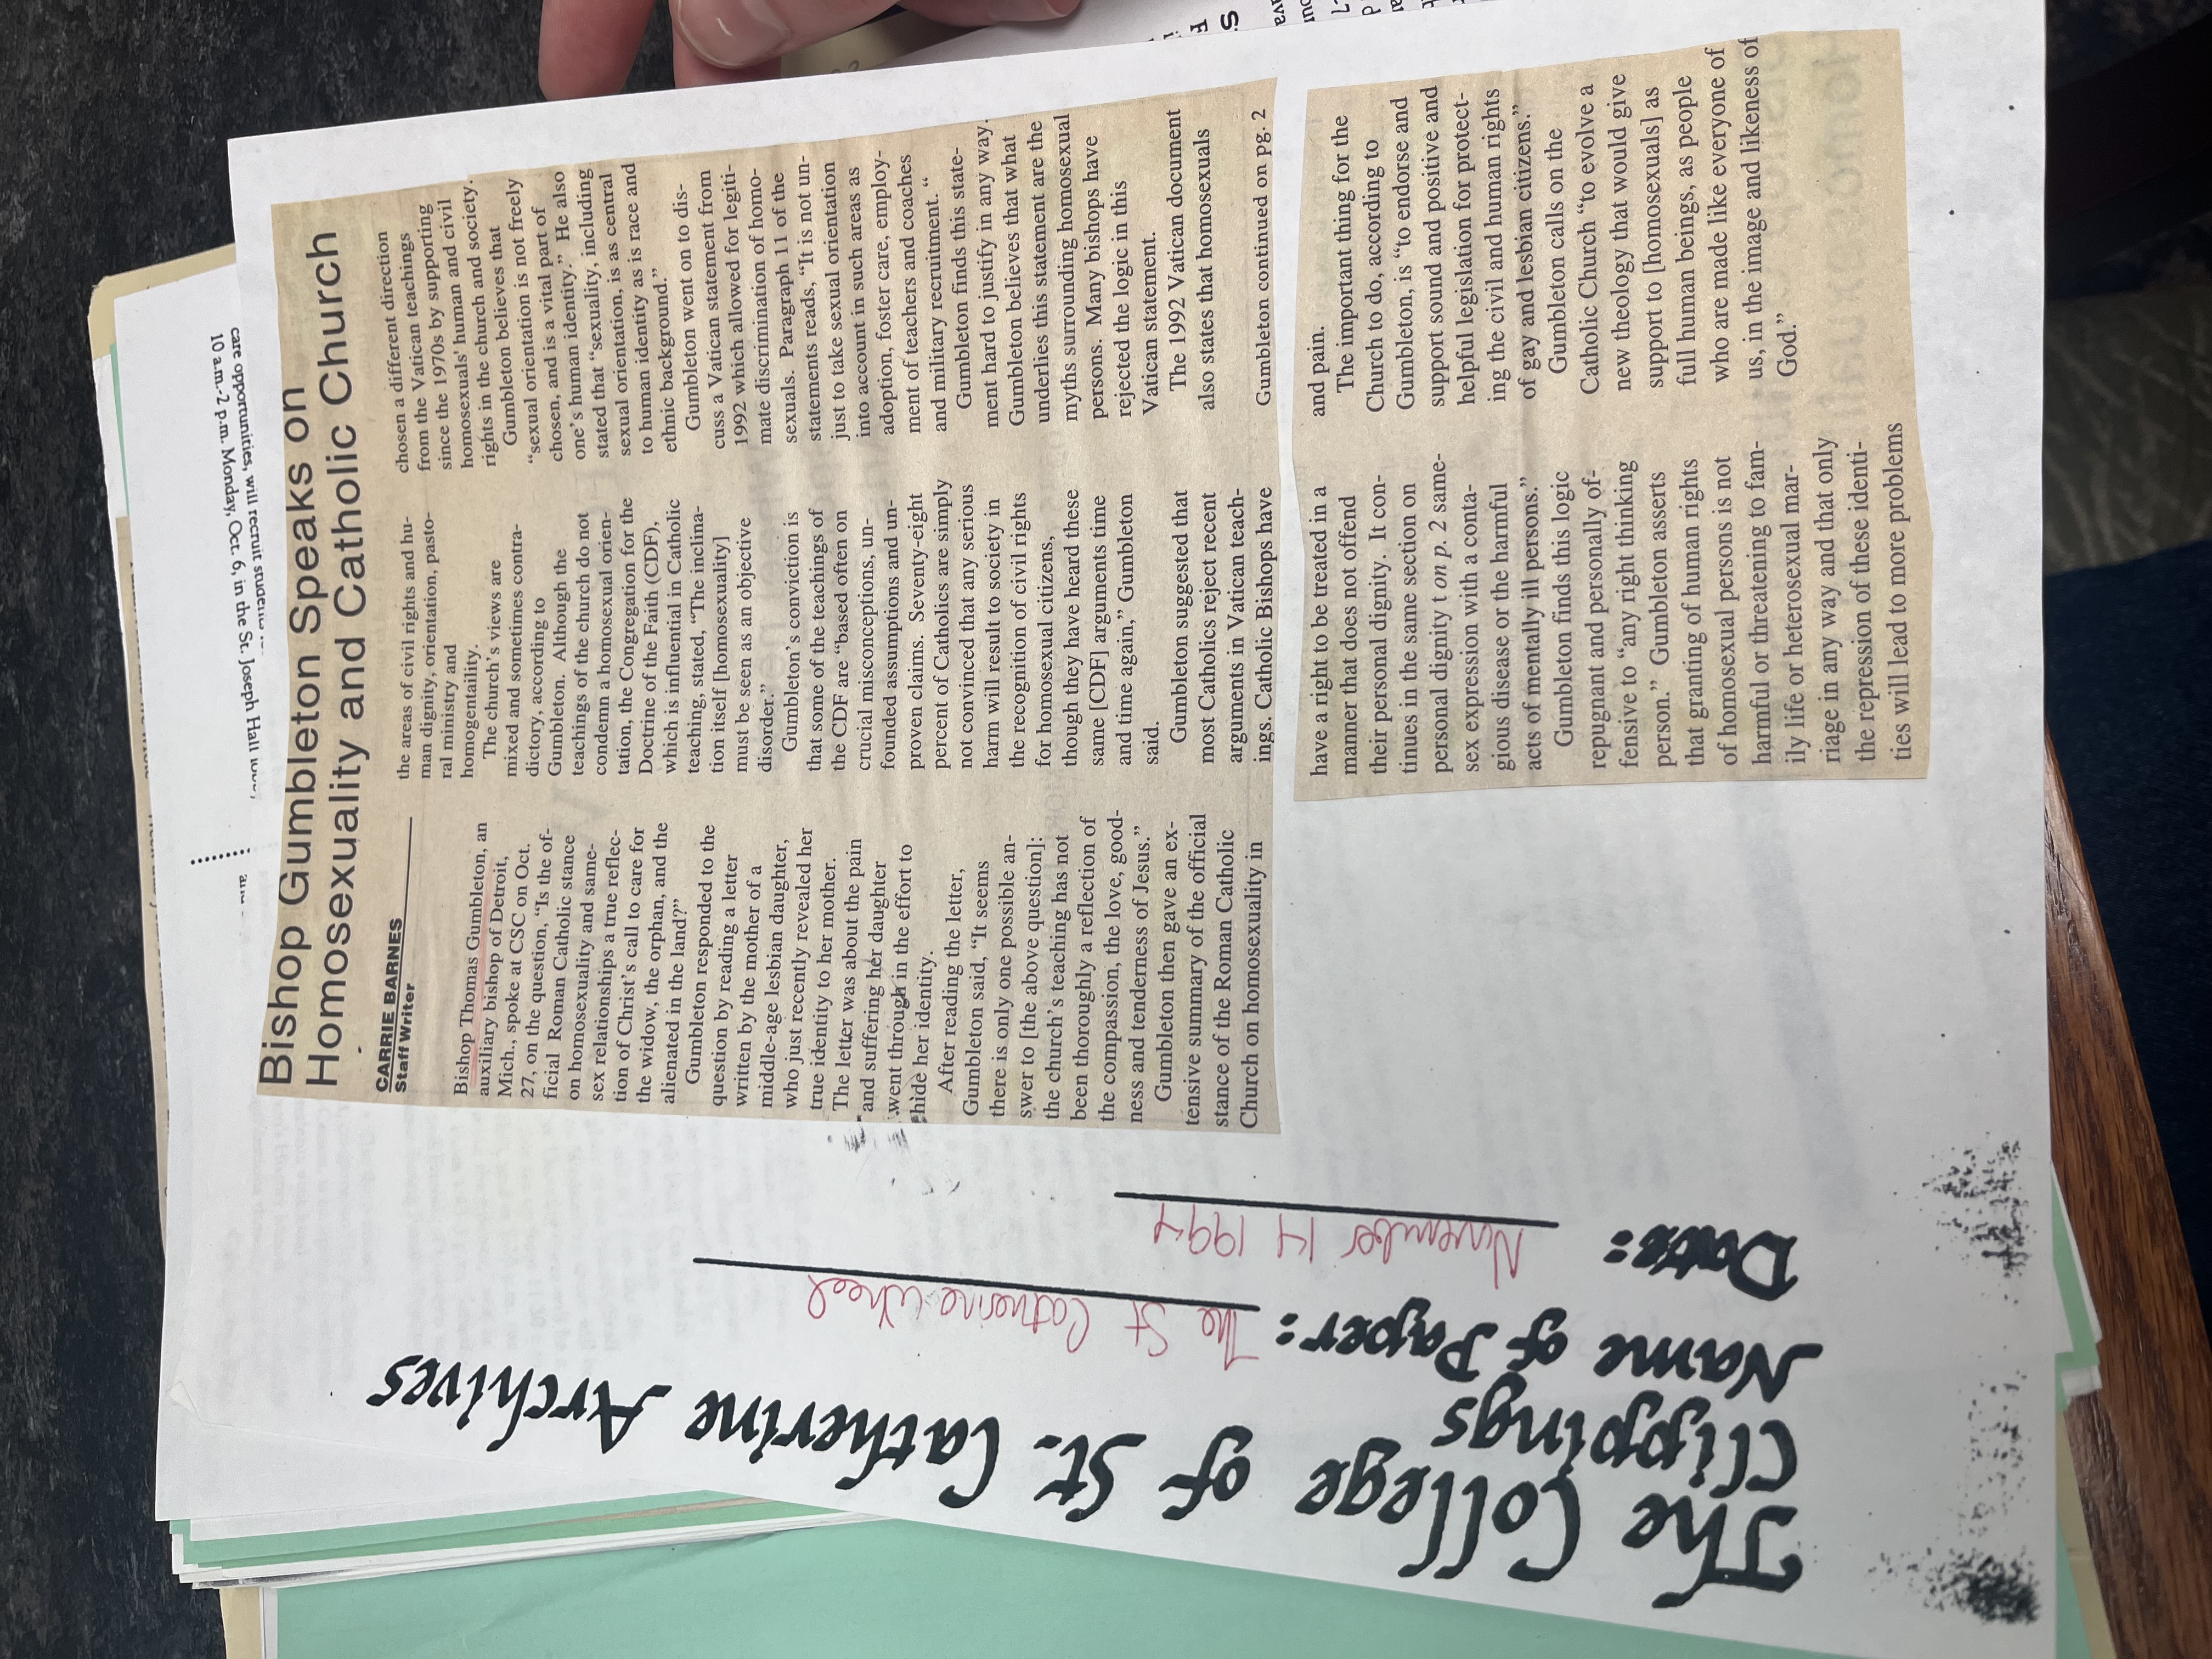 The College of St. Catherine Archives
Clippings
Name of Paper: The St Catherine Wheel
Date: November 14 1994
care opportunities, will recruit students
10 a.m.-2 p.m. Monday, Oct. 6, in the St. Joseph Hall
Bishop Gumbleton Speaks on
Homosexuality and Catholic Church
CARRIE BARNES
Staff Writer
Bishop Thomas Gumbleton, an
auxiliary bishop of Detroit,
Mich., spoke at CSC on Oct.
27, on the question, “Is the of-
ficial Roman Catholic stance
on homosexuality and same-
sex relationships a true reflec-
tion of Christ’s call to care for
the widow, the orphan, and the
alienated in the land?”
Gumbleton responded to the
question by reading a letter
written by the mother of a
middle-age lesbian daughter,
who just recently revealed her
true identity to her mother.
The letter was about the pain
and suffering her daughter
went through in the effort to
hide her identity.
After reading the letter,
Gumbleton said, “It seems
there is only one possible an-
swer to [the above question]:
the church’s teaching has not
been thoroughly a reflection of
the compassion, the love, good-
ness and tenderness of Jesus.”
Gumbleton then gave an ex-
tensive summary of the official
stance of the Roman Catholic
Church on homosexuality in
the areas of civil rights and hu-
man dignity, orientation, pasto-
ral ministry and
homogentaility.
The church’s views are
mixed and sometimes contra-
dictory, according to
Gumbleton. Although the
teachings of the church do not
condemn a homosexual orien-
tation, the Congregation for the
Doctrine of the Faith (CDF),
which is influential in Catholic
teaching, stated, “The inclina-
tion itself [homosexuality]
must be seen as an objective
disorder.”
Gumbleton’s conviction is
that some of the teachings of
the CDF are “based often on
crucial misconceptions, un-
founded assumptions and un-
proven claims. Seventy-eight
percent of Catholics are simply
not convinced that any serious
harm will result to society in
the recognition of civil rights
for homosexual citizens,
though they have heard these
same [CDF] arguments time
and time again,” Gumbleton
said.
Gumbleton suggested that
most Catholics reject recent
arguments in Vatican teach-
ings. Catholic Bishops have
chosen a different direction
from the Vatican teachings
since the 1970s by supporting
homosexuals' human and civil
rights in the church and society.
Gumbleton believes that
“sexual orientation is not freely
chosen, and is a vital part of
one’s human identity.” He also
stated that “sexuality, including
sexual orientation, is as central
to human identity as is race and
ethnic background.”
Gumbleton went on to dis-
cuss a Vatican statement from
1992 which allowed for legiti-
mate discrimination of homo-
sexuals. Paragraph 11 of the
statements reads, “It is not un-
just to take sexual orientation
into account in such areas as
adoption, foster care, employ-
ment of teachers and coaches
and military recruitment. “
Gumbleton finds this state-
ment hard to justify in any way.
Gumbleton believes that what
underlies this statement are the
myths surrounding homosexual
persons. Many bishops have
rejected the logic in this
Vatican statement.
The 1992 Vatican document
also states that homosexuals
Gumbleton continued on pg. 2
have a right to be treated in a
manner that does not offend
their personal dignity. It con-
tinues in the same section on
personal dignity t on p. 2 same-
sex expression with a conta-
gious disease or the harmful
acts of mentally ill persons.”
Gumbleton finds this logic
repugnant and personally of-
fensive to “any right thinking
person.” Gumbleton asserts
that granting of human rights
of homosexual persons is not
harmful or threatening to fam-
ily life or heterosexual mar-
riage in any way and that only
the repression of these identi-
ties will lead to more problems
and pain.
The important thing for the
Church to do, according to
Gumbleton, is “to endorse and
support sound and positive and
helpful legislation for protect-
ing the civil and human rights
of gay and lesbian citizens.”
Gumbleton calls on the
Catholic Church “to evolve a
new theology that would give
support to [homosexuals] as
full human beings, as people
who are made like everyone of
us, in the image and likeness of
God.”